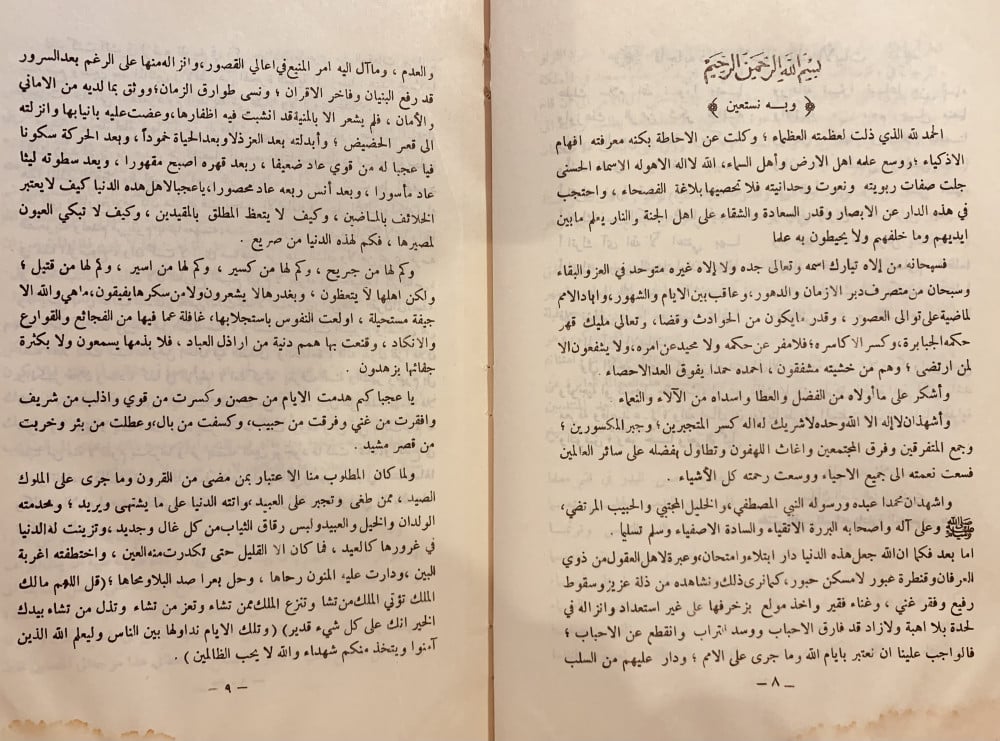 بسم الله الرحمن الرحيم
﴿ وبه نستعين ﴾
الحمد لله الذي ذلت لعظمته العظماء ؛ وكلت عن الاحاطة بكنه معرفته افهام
الاذكياء ؛ ووسع علمه اهل الارض وأهل السماء، الله لااله الاهوله الاسماء الحسنى
جلت صفات ربوبيته ونعوت وحدانيته فلا تحصيها بلاغة الفصحاء ، واحتجب
في هذه الدار عن الابصار وقدر السعادة والشقاء على اهل الجنة والنار يعلم مابين
ايديهم وما خلفهم ولا يحيطون به علما
فسبحانه من إلاه تبارك اسمه وتعالى جده ولا إلاه غيره متوحد في العز والبقاء
وسبحان من متصرف دبر الازمان والدهور، وعاقب بين الايام والشهور، واباد الامم
لماضية على توالى العصور ، وقدر مايكون من الحوادث وقضا، وتعالى مليك قهر
حكمه الجبابرة، وكسر الاكاسره؛ فلامفر عن حكمه ولا محيد عن امره، ولا يشفعون الا
لمن ارتضى ؛ وهم من خشيته مشفقون ، احمده حمدا يفوق العد الاحصاء .
وأشكر على ماأولاه من الفضل والعطا واسداه من الآلاء والنعماء .
وأشهد ان لا إله الا الله وحده لاشريك له اله كسر المتجبرين؛ وجبر المكسورين ؛
وجمع المتفرقين وفرق المجتمعين واغاث اللهفون وتطاول بفضله على سائر العالمين
فسعت نعمته الى جميع الاحياء ووسعت رحمته كل الأشياء .
واشهد ان محمدا عبده ورسوله النبي المصطفي، والخليل المجتبي والحبيب المرتضي،
ﷺ وعلى آله واصحابه البررة الاتقياء والسادة الاصفياء وسلم تسليما .
اما بعد فكما ان الله جعل هذه الدنيا دار ابتلاء وامتحان، وعبرة لاهل العقول من ذوي
العرفان وقنطرة عبور لامسكن حبور، كما نرى ذلك ونشاهده من ذلة عزيز وسقوط
رفيع وفقر غني ، وغناء فقير واخذ مولع بزخرفها على غير استعداد وانزاله في
لحدة بلا اهبة ولازاد قد فارق الاحباب ووسد التراب وانقطع عن الاحباب ؛
فالواجب علينا ان نعتبر بايام الله وما جرى على الامم ؛ ودار عليهم من السلب
— ٨ —
والعدم ، وماآل اليه امر المنيع في اعالي القصور، وانزاله منها على الرغم بعد السرور
قد رفع البنيان وفاخر الاقران ؛ ونسى طوارق الزمان؛ ووثق بما لديه من الاماني
والأمان ، فلم يشعر الا بالمنية قد انشبت فيه اظفارها، وعضت عليه بانيابها وانزلته
الى قعر الحضيض ؛ وأبدلته بعد العز ذلا وبعد الحياة خموداً، وبعد الحركة سكونا
فيا عجبا له من قوي عاد ضعيفا ، وبعد قهره اصبح مقهورا ، وبعد سطوته ليثا
عاد مأسورا ، وبعد أنس ربعه عاد محصورا، ياعجبا لاهل هذه الدنيا كيف لا يعتبر
الخلائف بالماضين ، وكيف لا يتعظ المطلق بالمقيدين ، وكيف لا تبكي العيون
لمصيرها ، فكم لهذه الدنيا من صريع .
وكم لها من جريح ، وكم لها من كسير ، وكم لها من اسير ، وكم لها من قتيل ؛
ولكن اهلها لا يتعظون ، وبغدرها لا يشعرون ولا من سكرها يفيقون، ماهي والله الا
جيفة مستحيلة ، اولعت النفوس باستجلابها، غافلة عما فيها من الفجائع والقوارع
والانكاد ، وقنعت بها همم دنية من اراذل العباد ، فلا بذمها يسمعون ولا بكثرة
جفائها يزهدون .
يا عجبا كم هدمت الايام من حصن وكسرت من قوي واذلت من شريف
وافقرت من غني وفرقت من حبيب، وكسفت من بال، وعطلت من بئر وخربت
من قصر مشيد .
ولما كان المطلوب منا الاعتبار بمن مضى من القرون وما جرى على الملوك
الصيد ، ممن طغى وتجبر على العبيد، واتته الدنيا على ما يشتهى ويريد ؛ وخدمته
الولدان والخيل والعبيد ولبس رقاق الثياب من كل غال وجديد ، وتزينت له الدنيا
في غرورها كالعيد ، فما كان الا القليل حتى تكدرت منه العين ، واختطفته اغربة
البين ، ودارت عليه المنون رحاها ، وحل بعرا صد البلا ومحاها ؛ (قل اللهم مالك
الملك تؤتي الملك من تشا وتنزع الملك ممن تشاء وتعز من تشاء وتذل من تشاء بيدك
الخير انك على كل شيء قدير) (وتلك الايام نداولها بين الناس وليعلم الله الذين
آمنوا ويتخذ منكم شهداء والله لا يحب الظالمين ) .
— ٩ —